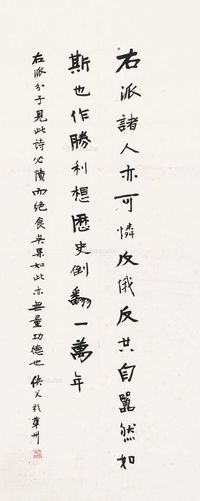 右派諸人亦可憐反俄反共自囂然如
斯也作勝利想歷史倒翻一萬年
左派分子見此詩必憤而絕食矣果如此亦無量功德也 俠父於草州